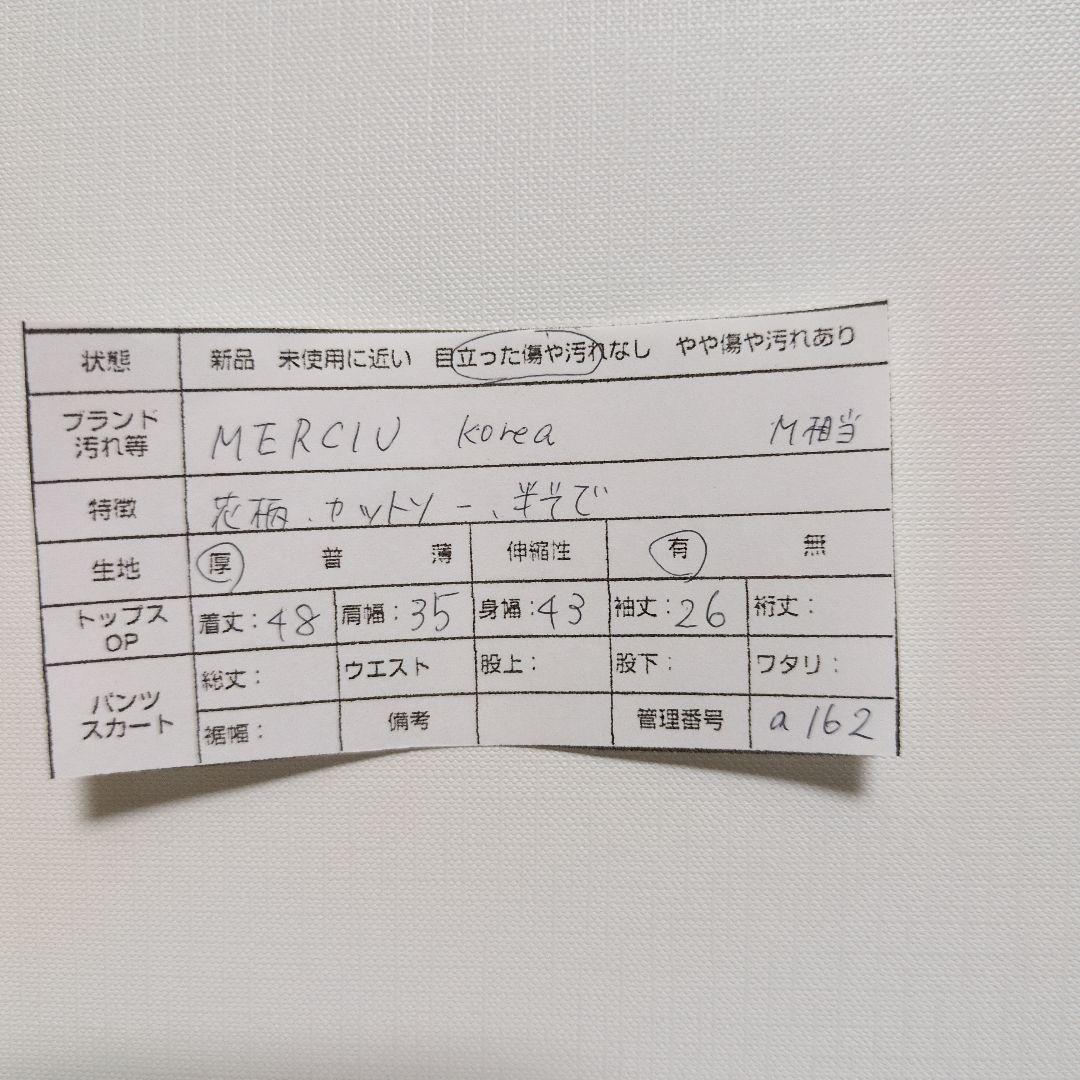 状態 新品 未使用に近い 目立った傷や汚れなし やや傷や汚れあり
ブランド
汚れ等 MERCIU Korea M相当
特徴 花柄、カットソー、半そで
生地 厚 普 薄 伸縮性 有 無
トップス
OP 着丈：48 肩幅：35 身幅：43 袖丈：26 裄丈：
パンツ
スカート 総丈： ウエスト 股上： 股下： ワタリ：
裾幅： 備考 管理番号 a162